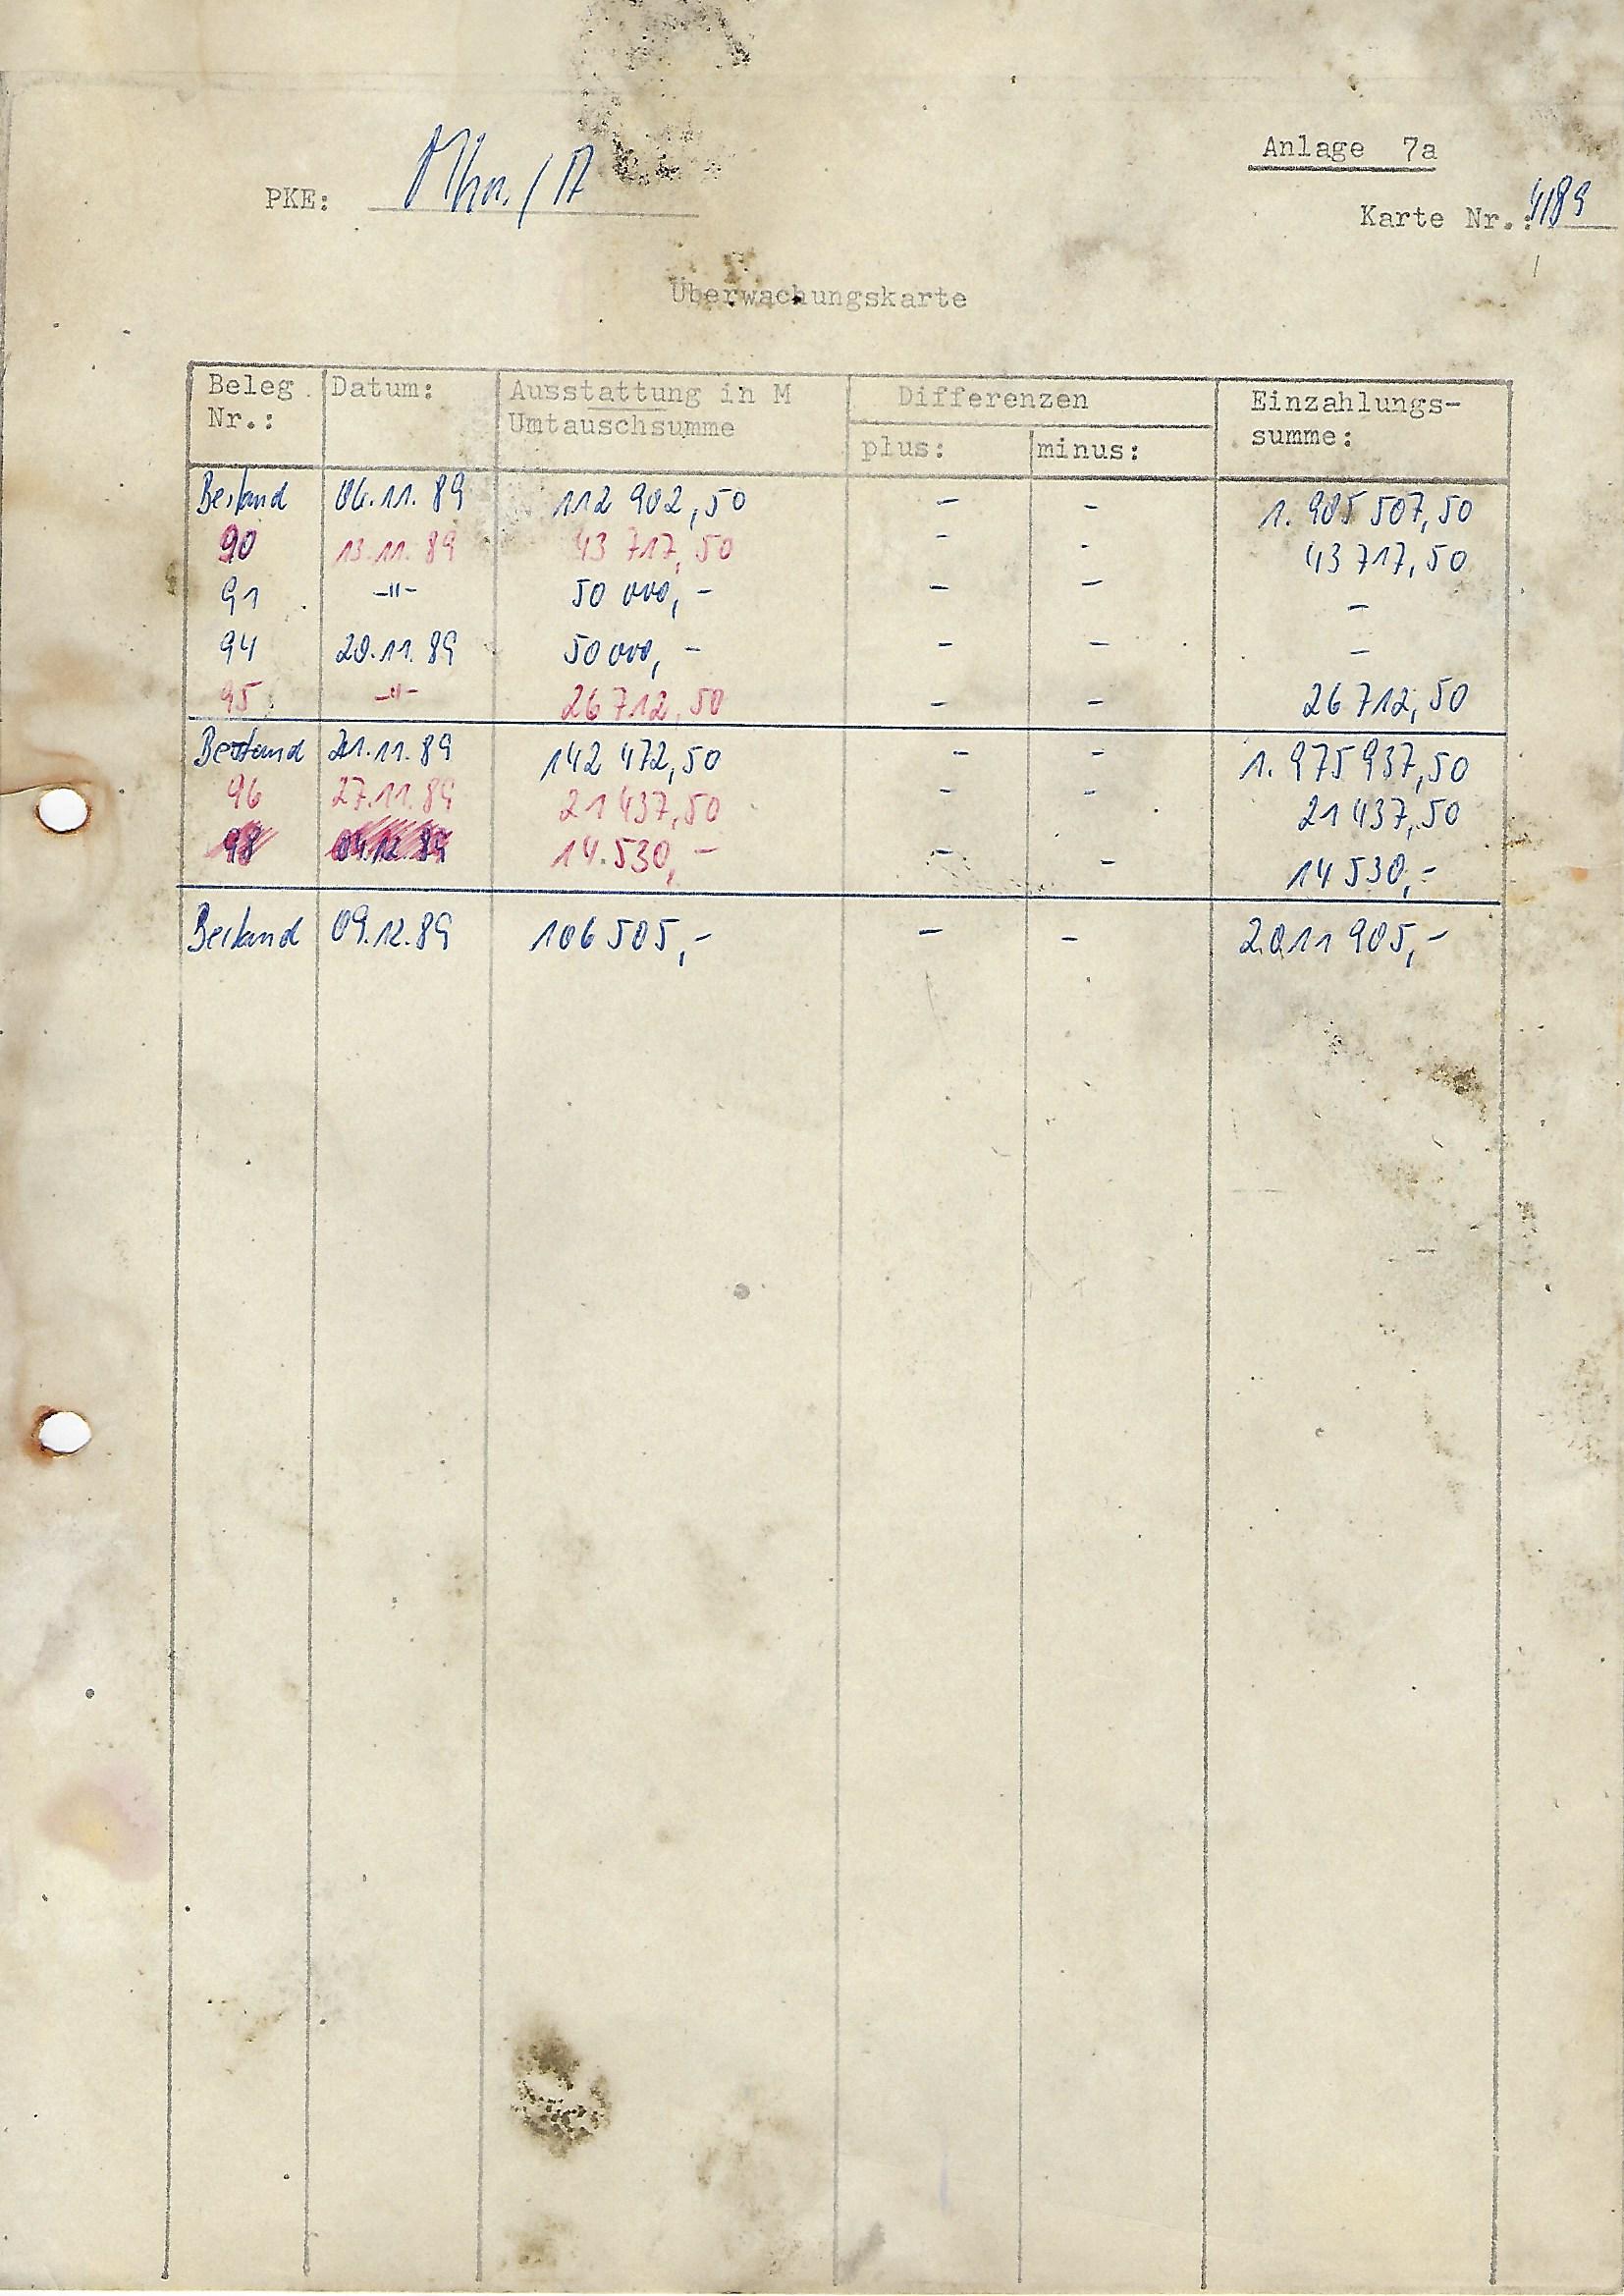 Anlage 7a
PKE:
Karte Nr.: 4/89
Überwachungskarte
Beleg Nr.: Datum: Ausstattung in M Umtauschsumme Differenzen plus: minus: Einzahlungs-summe:
Bestand 06.11.89 112 902,50 - - 1.905 507,50
90 13.11.89 43 717,50 - - 43 717,50
91 -"- 50 000,- - - -
94 20.11.89 50 000,- - - -
95 -"- 26 712,50 - - 26 712,50
Bestand 21.11.89 142 472,50 - - 1.975 937,50
96 27.11.89 21 437,50 - - 21 437,50
98 04.12.89 14.530,- - - 14 530,-
Bestand 09.12.89 106 505,- - - 2.011 905,-